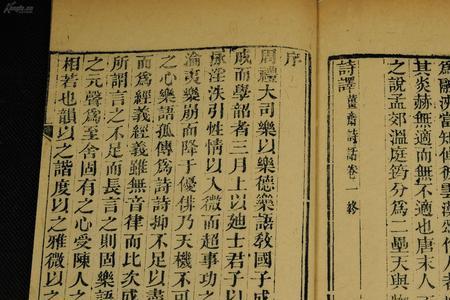 其炎赫無適而無不適也唐末人
之說孟郊溫庭筠分爲二壘天與
詩譯 薑齋詩話卷一終
序
周禮大司樂以樂德樂語敎國子成
成而學韶者三月上以廸士君子以
泳淫泆引性情以入微而超事功之
淪夷樂崩而降于優俳乃天機不可
之心樂語孤傳爲詩詩抑不足以盡
而爲經義經義雖無音律而比次成
所謂言之不足而長言之則固樂語
之元聲爲至舍固有之心受陳人之
相若也韻以之諧度以之雅微以之